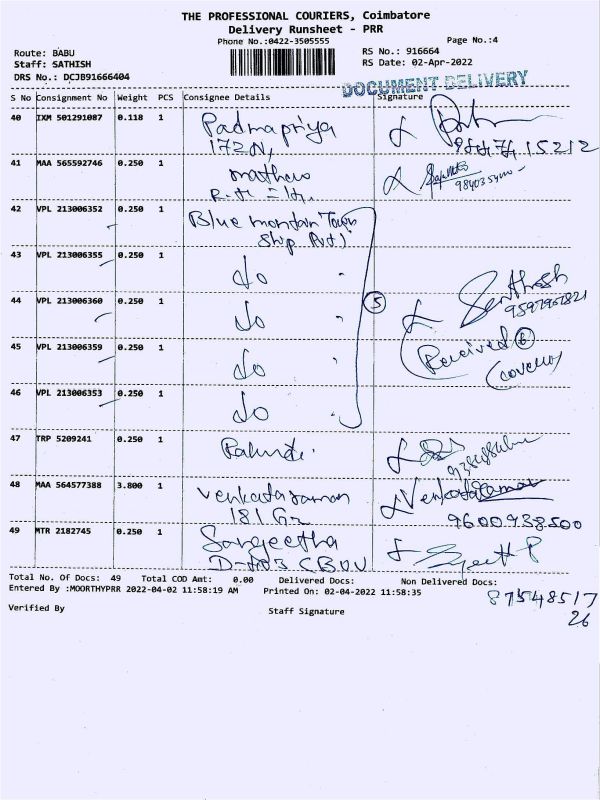 THE PROFESSIONAL COURIERS, Coimbatore
Delivery Runsheet - PRR
Phone No.:0422-3505555
Page No.:4
Route: BABU
RS No.: 916664
Staff: SATHISH
RS Date: 02-Apr-2022
DRS No.: DCJB91666404
DOCUMENT DELIVERY
S No Consignment No Weight PCS Consignee Details Signature
40 IXM 501291087 0.118 1 Padmapriya
172N,
15212
41 MAA 565592746 0.250 1 mathew
42 VPL 213006352 0.250 1 Blue
Ship
43 VPL 213006355 0.250 1 do "
44 VPL 213006360 0.250 1 do " Senthosh
5
45 VPL 213006359 0.250 1 do " Received 6
(covers)
46 VPL 213006353 0.250 1 do "
47 TRP 5209241 0.250 1
48 MAA 564577388 3.800 1 Venkataraman Venkataraman
181 9600938500
49 MTR 2182745 0.250 1 Sangeetha
Total No. Of Docs: 49 Total COD Amt: 0.00 Delivered Docs: Non Delivered Docs:
Entered By :MOORTHYPRR 2022-04-02 11:58:19 AM Printed On: 02-04-2022 11:58:35
87548517
26
Verified By
Staff Signature